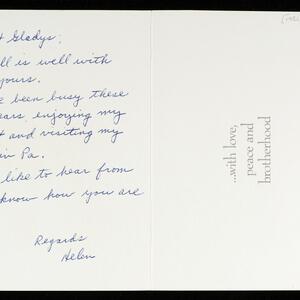 Gladys,
ll is well with
yours.
been busy these
ears enjoying my
and visiting my
in Pa.
like to hear from
know how you are
Regards
Helen
...with love,
peace and
brotherhood